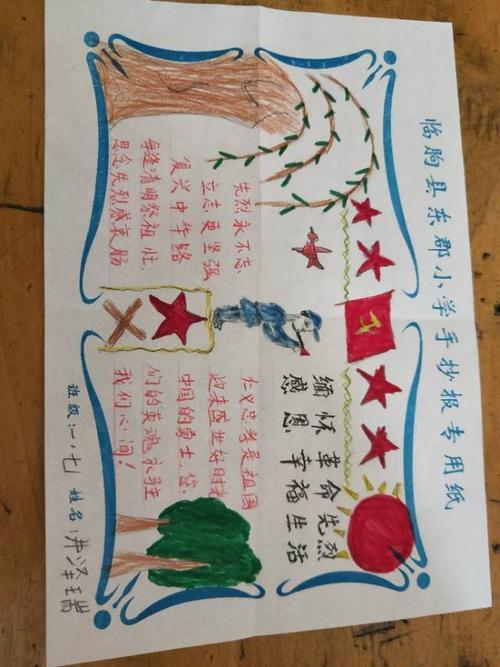 临朐县东郡小学手抄报专用纸
缅怀革命先烈
感恩幸福生活
先烈永不忘
立志更坚强
复兴中华路
每逢清明祭祖忙
思念先烈感衷肠
仁义忠孝是祖国
迎来盛世好时光
中国的勇士,您
们的英魂永驻
我们心间!
班级:一、七 姓名: